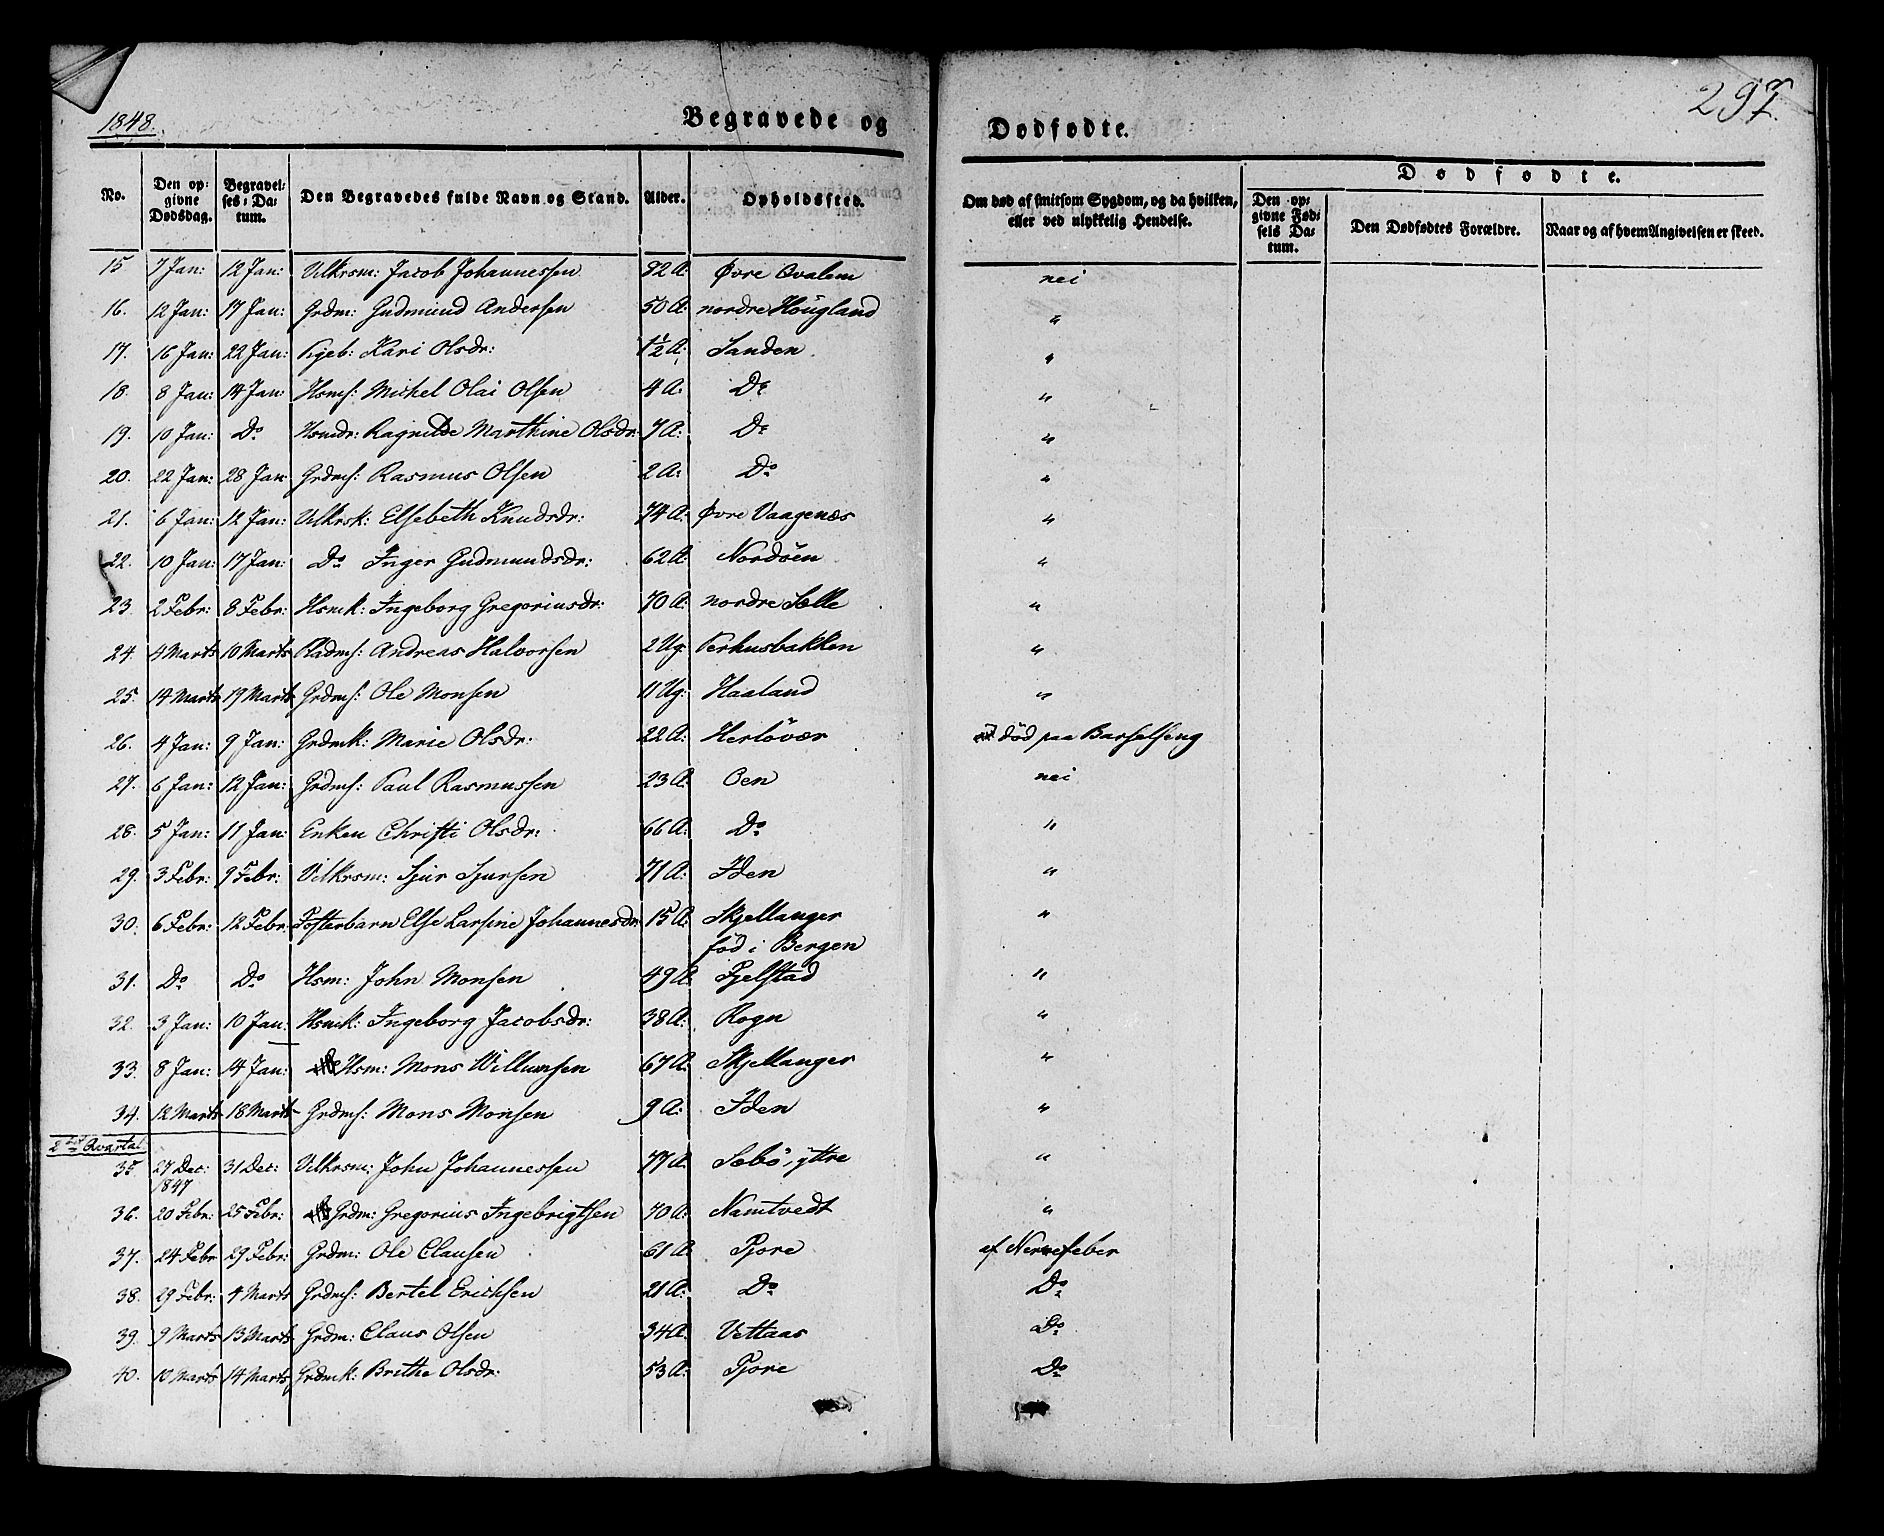 297.
1848.
Begravede og Dødfødte.
No. | Den opgivne Dødsdag. | Begravelses-Datum. | Den Begravedes fulde Navn og Stand. | Alder. | Opholdssted. | Om død af smitsom Sygdom, og da hvilken, eller ved ulykkelig Hendelse. | Dødfødte. | Den opgivne Fødsels Datum. | Den Dødfødtes Forældre. | Naar og af hvem Angivelsen er skeed.
15 | 7 Jan: | 12 Jan: | Vilkrsm: Jacob Johannessen | 82 A: | Øvre Qvalem | nei
16. | 12 Jan: | 17 Jan: | Grdm: Gudmund Andersen | 50 A: | nordre Höugland | "
17. | 16 Jan: | 22 Jan: | Pgeb: Kari Olsdr: | 1½ A: | Sanden. | "
18. | 8 Jan: | 14 Jan: | Hsms: Michel Olai Olsen | 4 A: | Do | "
19. | 10 Jan: | Do | Hsmdr: Ragnilde Marthine Olsdr: | 7 A: | Do | "
20. | 22 Jan: | 28 Jan | Grdms: Rasmus Olsen | 2 A: | Do | "
21. | 6 Jan: | 12 Jan: | Vilkrsk: Elsebeth Knudsdr: | 74 A: | Øvre Vaagenæs | "
22. | 10 Jan: | 17 Jan: | Do Inger Gudmundsdr: | 62 A: | Nordöen | "
23. | 2 Febr: | 8 Febr: | Hsmk: Ingeborg Gregoriusdr: | 70 A: | nordre Sælle | "
24. | 4 Marts | 10 Marts | Pladms: Andreas Halvorsen | 2 Ug: | Perhusbakken | "
25. | 14 Marts | 19 Marts | Grdms: Ole Monsen | 11 Ug: | Haaland | "
26. | 4 Jan: | 9 Jan: | Grdmk: Marie Olsdr: | 22 A: | Herlövær | død paa Barselseng
27. | 6 Jan: | 12 Jan: | Grdms: Paul Rasmussen | 23 A: | Oen | nei
28. | 5 Jan: | 11 Jan: | Enken Christi Olsdr: | 66 A: | Do | "
29. | 3 Febr: | 9 Febr: | Vilkrsm: Sjur Sjursen | 71 A: | Iden | "
30. | 6 Febr: | 12 Febr: | Fosterbarn Else Larsine Johannesdr: | 15 A: | Skjellanger | "
fød i Bergen
31. | Do | Do | Hsm: John Monsen | 49 A: | Fjelstad | "
32. | 3 Jan: | 10 Jan: | Hsmk: Ingeborg Jacobsdr: | 38 A: | Rogn | "
33. | 8 Jan: | 14 Jan: | Hsm: Mons Willumsen | 67 A: | Skjellanger | "
34. | 12 Marts | 18 Marts | Grdms: Mons Monsen | 9 A: | Iden | "
2det Qvartal
35. | 27 Dec: 1847 | 31 Dec: | Vilkrsm: John Johannessen | 77 A: | Sæbö, yttre | "
36. | 20 Febr: | 25 Febr: | Grdm: Gregorius Ingebrigtsen | 70 A: | Namtvedt | "
37. | 24 Febr | 29 Febr: | Grdm: Ole Clausen | 61 A: | Fjore | af Nervefeber
38. | 29 Febr: | 4 Marts | Grdms: Bertel Ericksen | 21 A: | Do | Do
39. | 9 Marts | 13 Marts | Grdm: Claus Olsen | 34 A: | Vettaas | Do
40. | 10 Marts | 14 Marts | Grdmk: Brithe Olsdr: | 53 A: | Fjore | Do